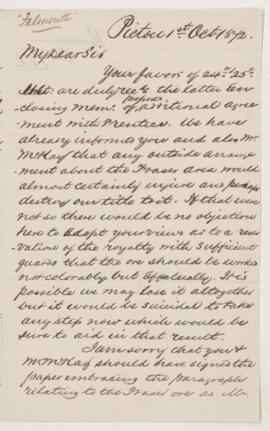 "Falmouth"
Pictou 1st Oct 1872.
My dear Sir
Your favors of 24th & 25th
are duly rec'd the latter en
closing mem. of proposed additional agree
ment with Prentice. We have
already informed you and also Mr.
McKay that any outside arrange
ment about the Fraser area would
almost certainly injure and perhaps
destroy our title to it. If that were
not so there would be no objection
here to adopt your views as to a reser
vation of the royalty with sufficient
guards that the ore should be worked
not colorably but effectually. It is
possible we may lose it altogether
but it would be suicidal to take
any step now which would be
sure to aid in that result.
I am sorry that you &
Mr McKay should have signed the
paper embracing the paragraph
relating to the Fraser ore as Mr.